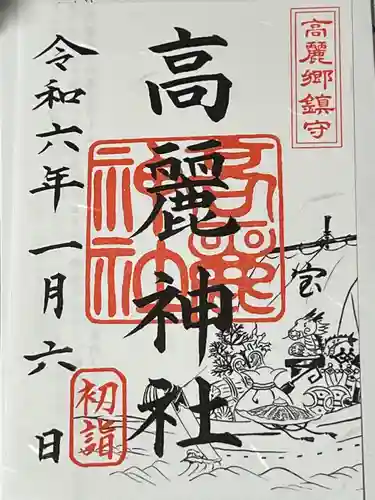 高麗郷鎮守
高麗神社
高麗神社
令和六年一月六日
初詣
宝